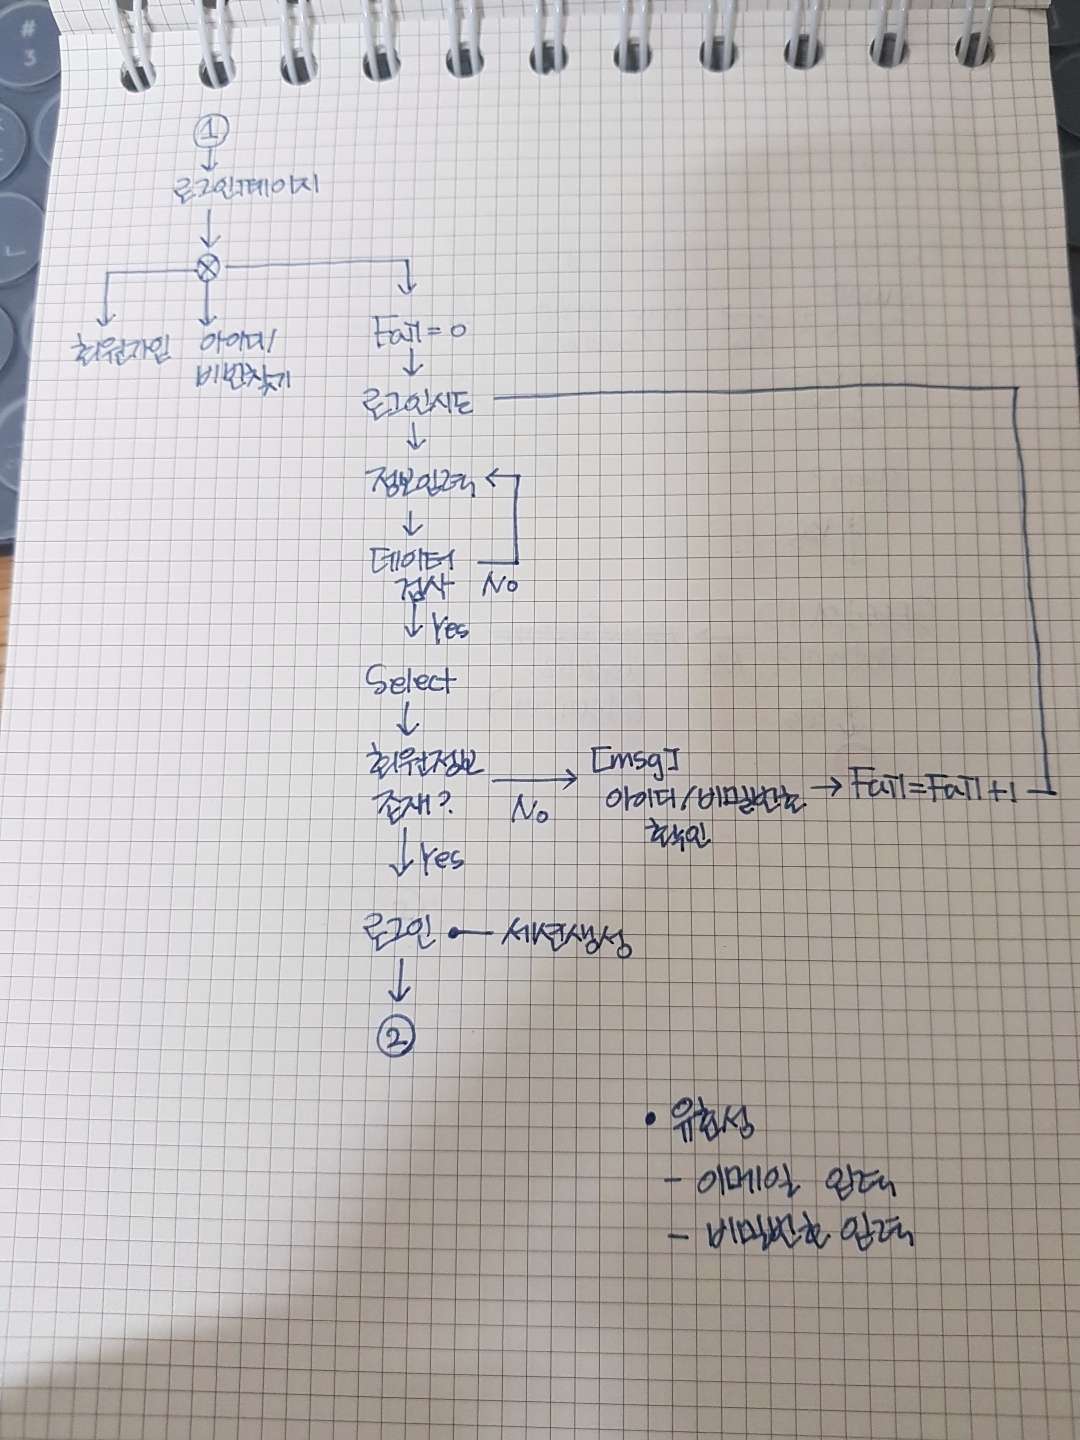 1
로그인페이지
회원가입
아이디/
비번찾기
Fail = 0
로그인시도
정보입력
데이터
검사
No
Yes
Select
회원정보
존재?
No
[msg]
아이디/비밀번호
확인
Fail=Fail+1
Yes
로그인
세션생성
2
• 유효성
- 이메일 입력
- 비밀번호 입력